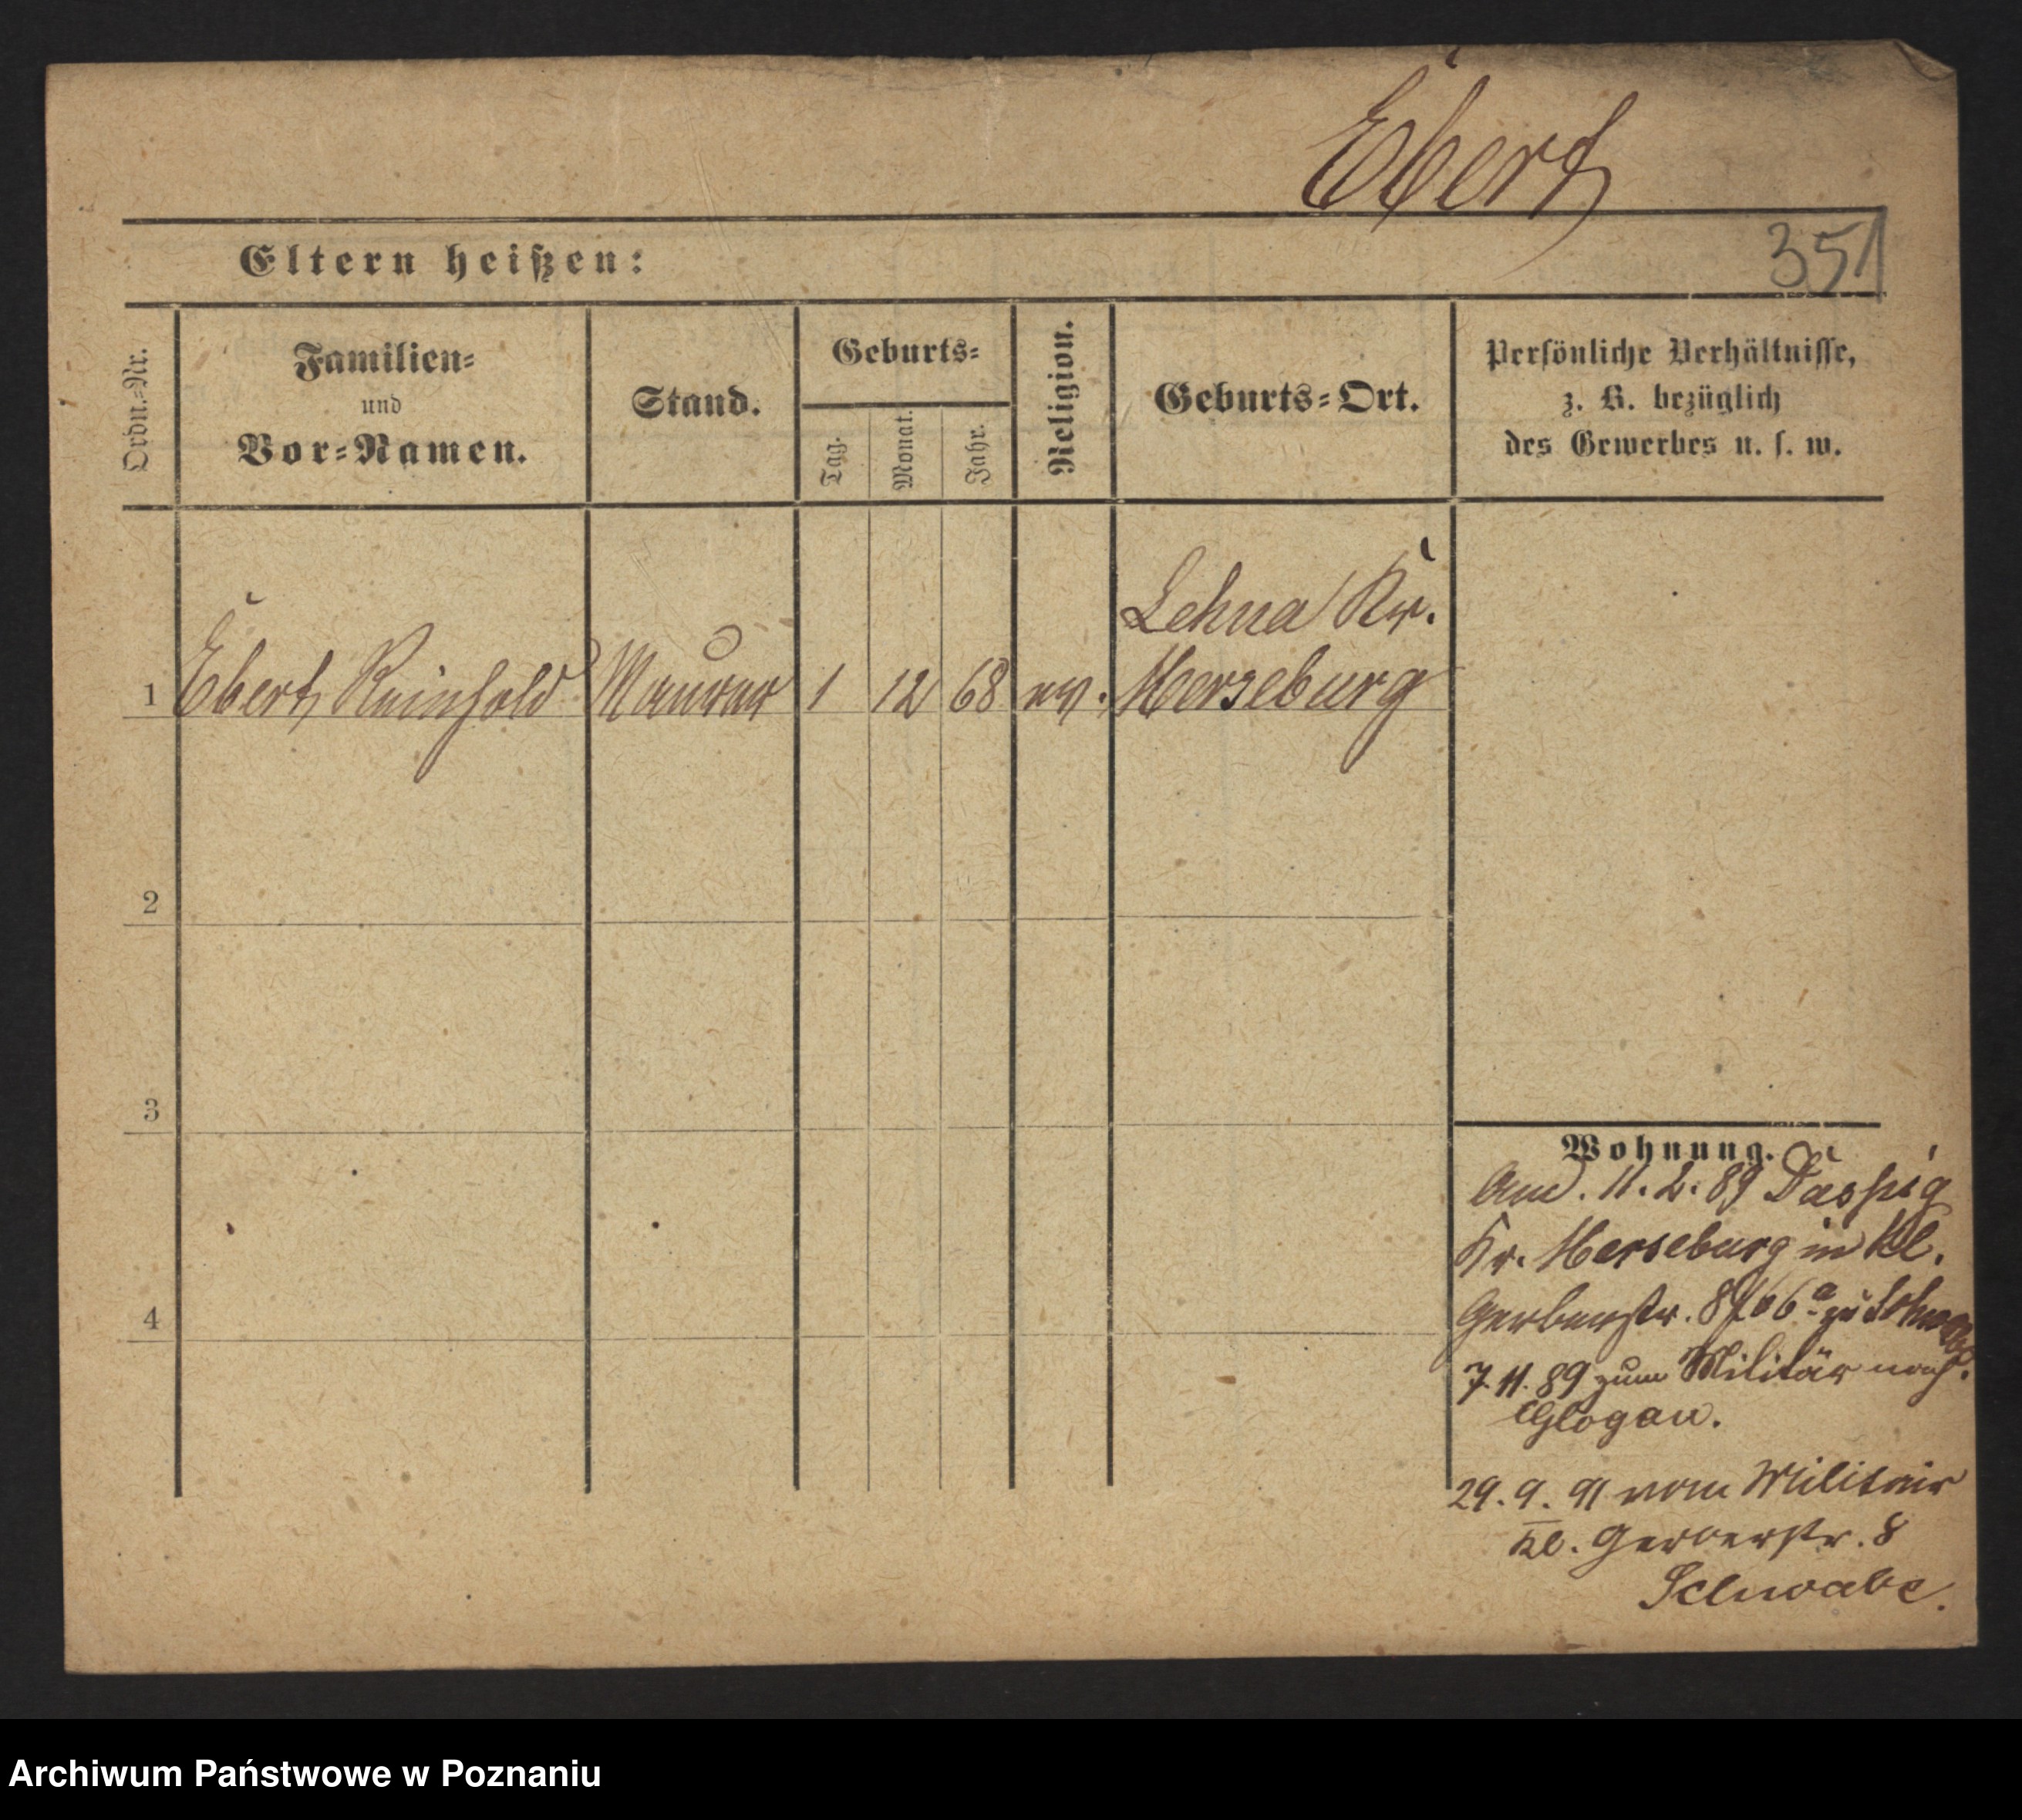 Ebert
351
Eltern heißen:
Ordn.-Nr.
Familien-
und
Vor-Namen.
Stand.
Geburts-
Tag.
Monat.
Jahr.
Religion.
Geburts-Ort.
Persönliche Verhältnisse,
z. B. bezüglich
des Gewerbes u. s. w.
Lehna Kr.
1 Ebert Reinhold Maurer 1 12 68 ev. Merseburg
2
3
4
Wohnung.
11. 2. 89 Daspig
Kr. Merseburg in Kl.
Gerberstr. 8
7. 11. 89 zum Militär nach
Glogau.
29. 9. 91 vom Militair
Kl. Gerberstr. 8
Schwabe.
Archiwum Państwowe w Poznaniu